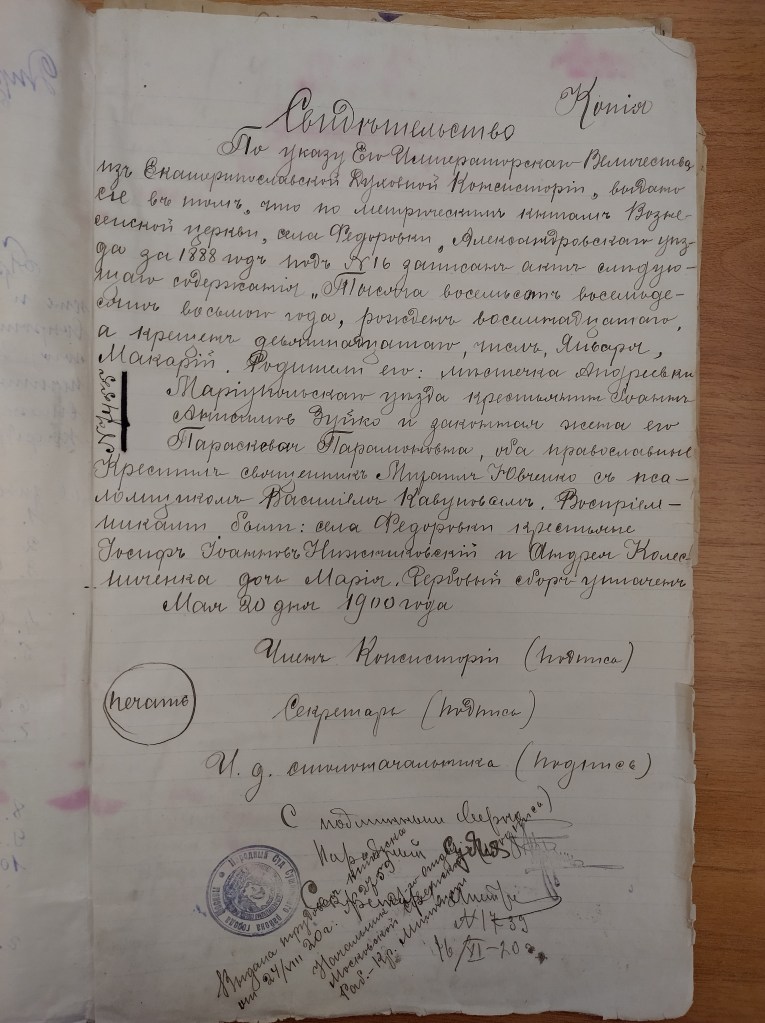 Копія
Свидѣтельство
По указу Его Императорскаго Величества,
изъ Екатеринославской Духовной Консисторіи, выдано
сіе въ томъ, что по метрическимъ книгамъ Возне-
сенской церкви, села Ѳедоровки, Александровскаго уѣз-
да за 1888 годъ подъ №16 записанъ актъ слѣдую-
щаго содержанія „Тысяча восемьсотъ восемьде-
сятъ восьмого года, рожденъ восемнадцатаго,
а крещенъ девятнадцатаго, числъ, Января,
Макарій. Родители его: мѣстечка Андреевки
Маріупольскаго уѣзда крестьянинъ Іоаннъ
Анисимовъ Зуйко и законная жена его
Параскевія Парамоновна, оба православные
Крестилъ священникъ Михаилъ Ювченко съ пса-
ломщикомъ Василіемъ Кавуновымъ. Воспріем-
никами были: села Ѳедоровки крестьяне
Іосифъ Іоанновъ Нижниковскій и Андрея Колес
ниченка дочь Марія. Гербовый сборъ уплаченъ
Мая 20 дня 1900 года
Членъ Консисторіи (подпись)
печать
Секретарь (подпись)
И. д. столоначальника (подпись)
С подлинным верно
Народный
Выдана
от 24/VIII 20г.
Начальник
Московской
Раб.-Кр. Милиции
№ 1739
16/VI-20г